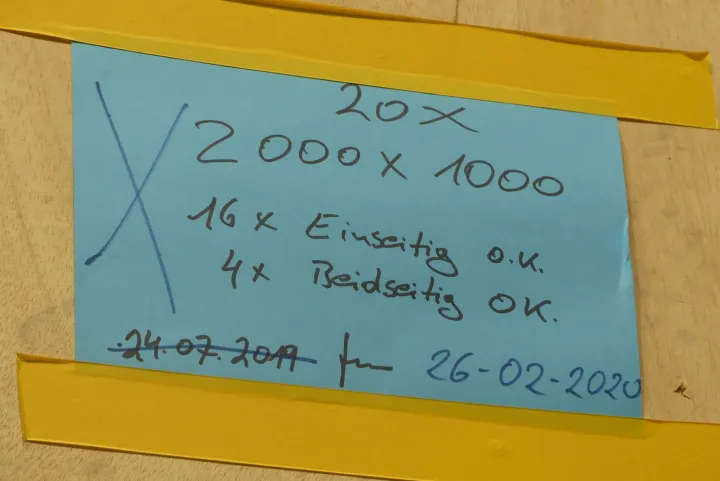 20x
2000 x 1000
16 x Einseitig o.K.
4x Beidseitig OK.
24.07.2019 26-02-2020